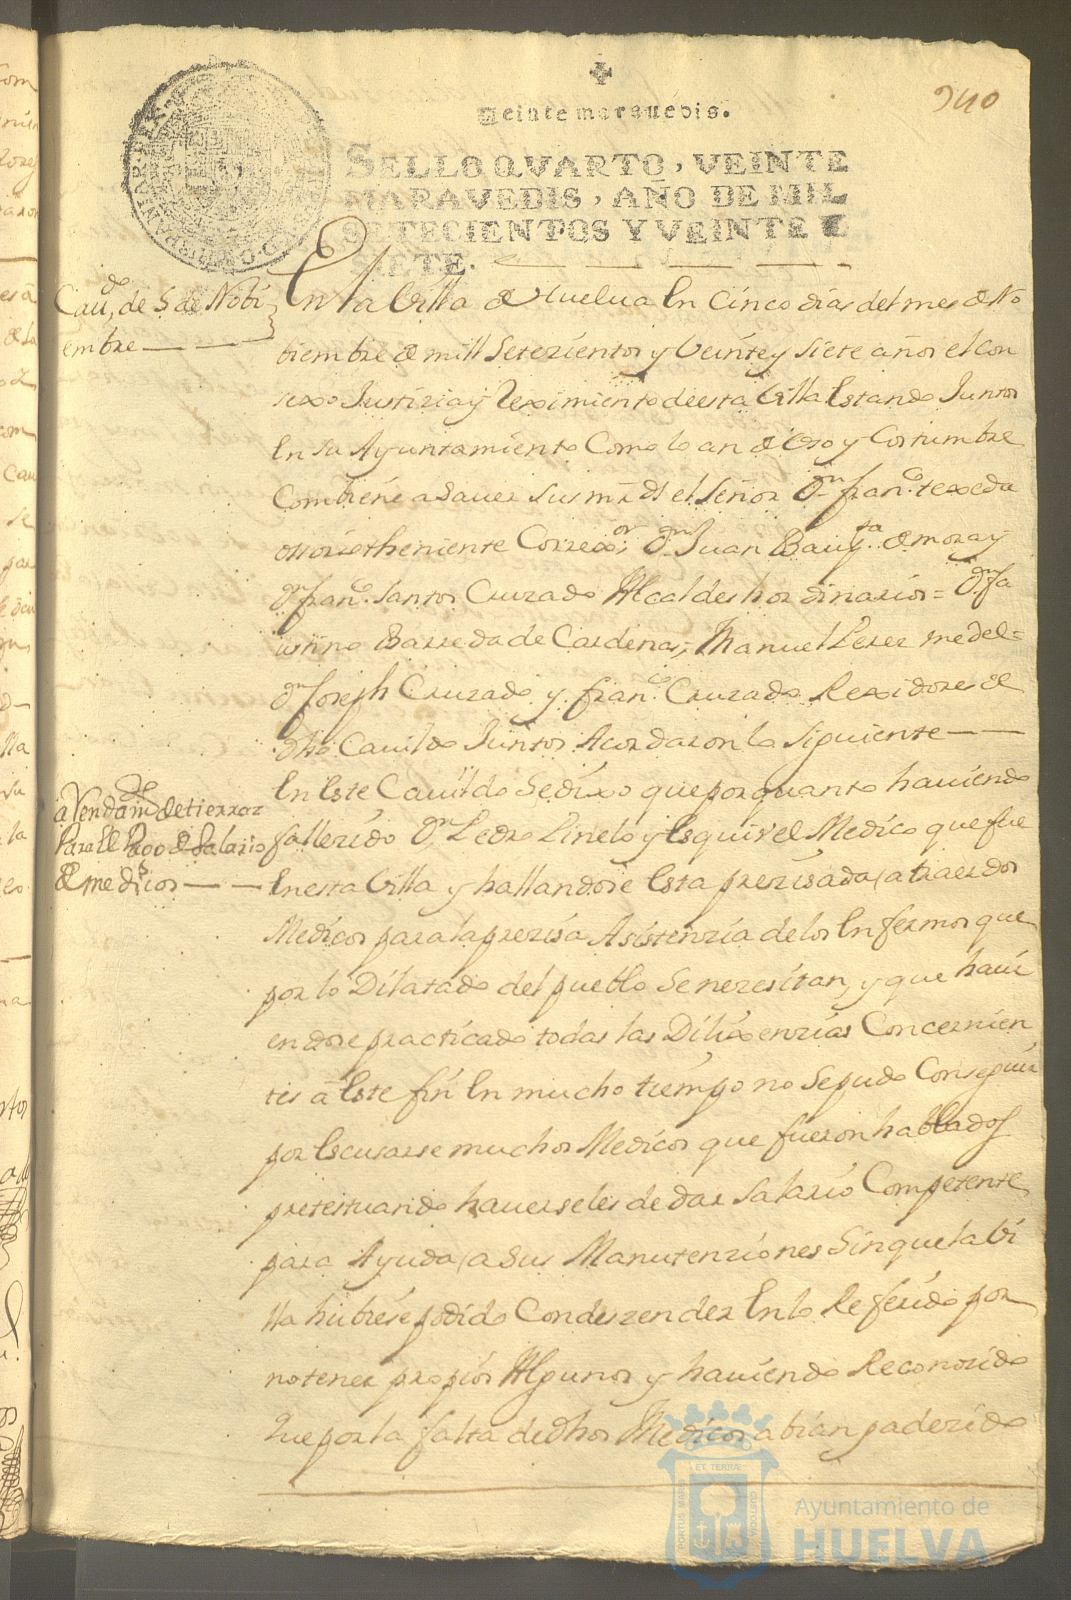 240
Veinte maravedis.
SELLO QVARTO, VEINTE
MARAVEDIS, AÑO DE MIL
SETECIENTOS Y VEINTE E
SIETE.
Cauᵈᵒ, de 5 de Nobi
embre
En la Villa de Huelua En Cinco dias del mes de No
biembre de mill Setezientos y Veinte y siete años el con
sexo Justizia y Reximiento de esta Villa Estando Juntos
En su Ayuntamiento Como lo an de Vso y Costumbre
Combiene a Sauer sus mrds el Señor Dn Franco. texeda
ossorio theniente Correxor, Dn Juan Bauta de mora y
Dn Franco. Santos Cruzado Alcaldes hordinarios = Dn Fa
ustino Barreda de Cardenas, Manuel Perez medel =
Dn Joseph Cruzado y Franco. Cruzado Rexidores de
dho Cauildo Juntos Acordaron lo Siguiente
a Vendan de tierras
Para El Pago de Salario
de medicos
En Este Cauildo Se dixo que por quanto hauiendo
fallezido Dn Pedro Pinelo y Esquivel Medico que fue
En esta Villa y hallandose Esta prezisada a traer dos
Medicos para la prezisa Asistenzia de los Enfermos que
por lo Dilatado del pueblo Se nezesitan, y que haui
endose practicado todas las Dilixenzias Concernien
tes a Este fin En mucho tiempo no Se pudo Conseguir
por Escusarse muchos Medicos que fueron hablados
pretestuando hauerseles de dar Salario Competente
para Ayuda a sus Manutenziones Sin que la Vi
lla hubiese podido Condeszender En lo Referido por
no tener propios Algunos y hauiendo Reconozido
Que por la falta de dhos Medicos abian padezido
PORTUS MARIS
ET TERRÆ
CUSTODIA
Ayuntamiento de
HUELVA